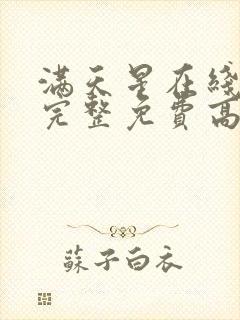 满天星在綫
完整免費高
蘇子白衣